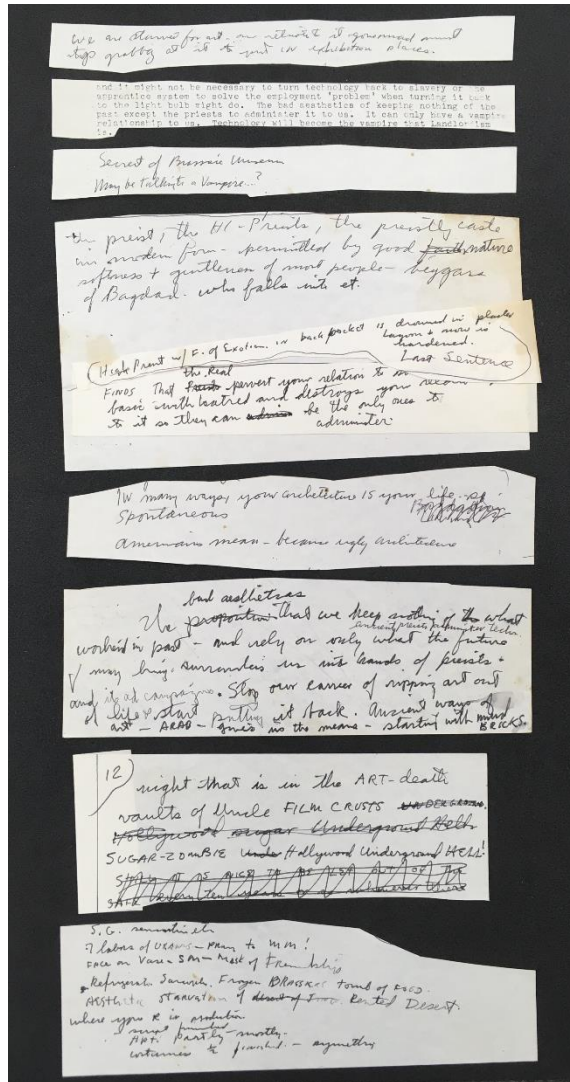 We are starved for art - our retreats to it government must
stop grabbing at it to put in exhibition places.
and it might not be necessary to turn technology back to slavery or the
apprentice system to solve the employment 'problem' when turning it back
to the light bulb might do. The bad aesthetics of keeping nothing of the
past except the priests to administer it to us. It can only have a vampire
relationship to us. Technology will become the vampire that Landlordism
is.
Secret of Brassiere Museum
May be talking to a Vampire..?
The preist, the HI-Preists, the preistly caste
in modern form - permitted by good faith nature
softness + gentleness of most people - beggars
of Bagdad. who falls into it.
High Preist w/ F. of Exotism. in back pocket is drowned in plaster
lagoon & now is
hardened.
Last Sentence
the Real
FINDS That pervert your relation to so
basic with hatred and destroys your
to it so they can be the only ones to
administer.
IN many ways your architecture IS your life. so
spontaneous
americains mean - because ugly architecture
bad aesthetics
The that we keep nothing of the what
worked in past - and rely on only what the future
may bring. surrenders us into hands of preists +
and its ad campaigns. Stop our career of ripping art out
of life & start putting it back. Ancient ways of
art - ARAB - gives us the means - starting with mud
BRICKS.
12
night that is in the ART-death
vaults of Uncle FILM CRUSTS UNDERGROUND.
Hollywood sugar Underground Hell
SUGAR-ZOMBIE Hollywood Underground HELL!
S.G.
7 labors of URANUS - PRAY to MM!
FACE on Vase - SAM - Mask of Friendship
Refrigerator Sarcoph. Frozen BRASSIERE tomb of FOOD.
AESthetic starvation of Rented Desert.
where your R is
partly - mostly.
costumes to finished. - asymmetry